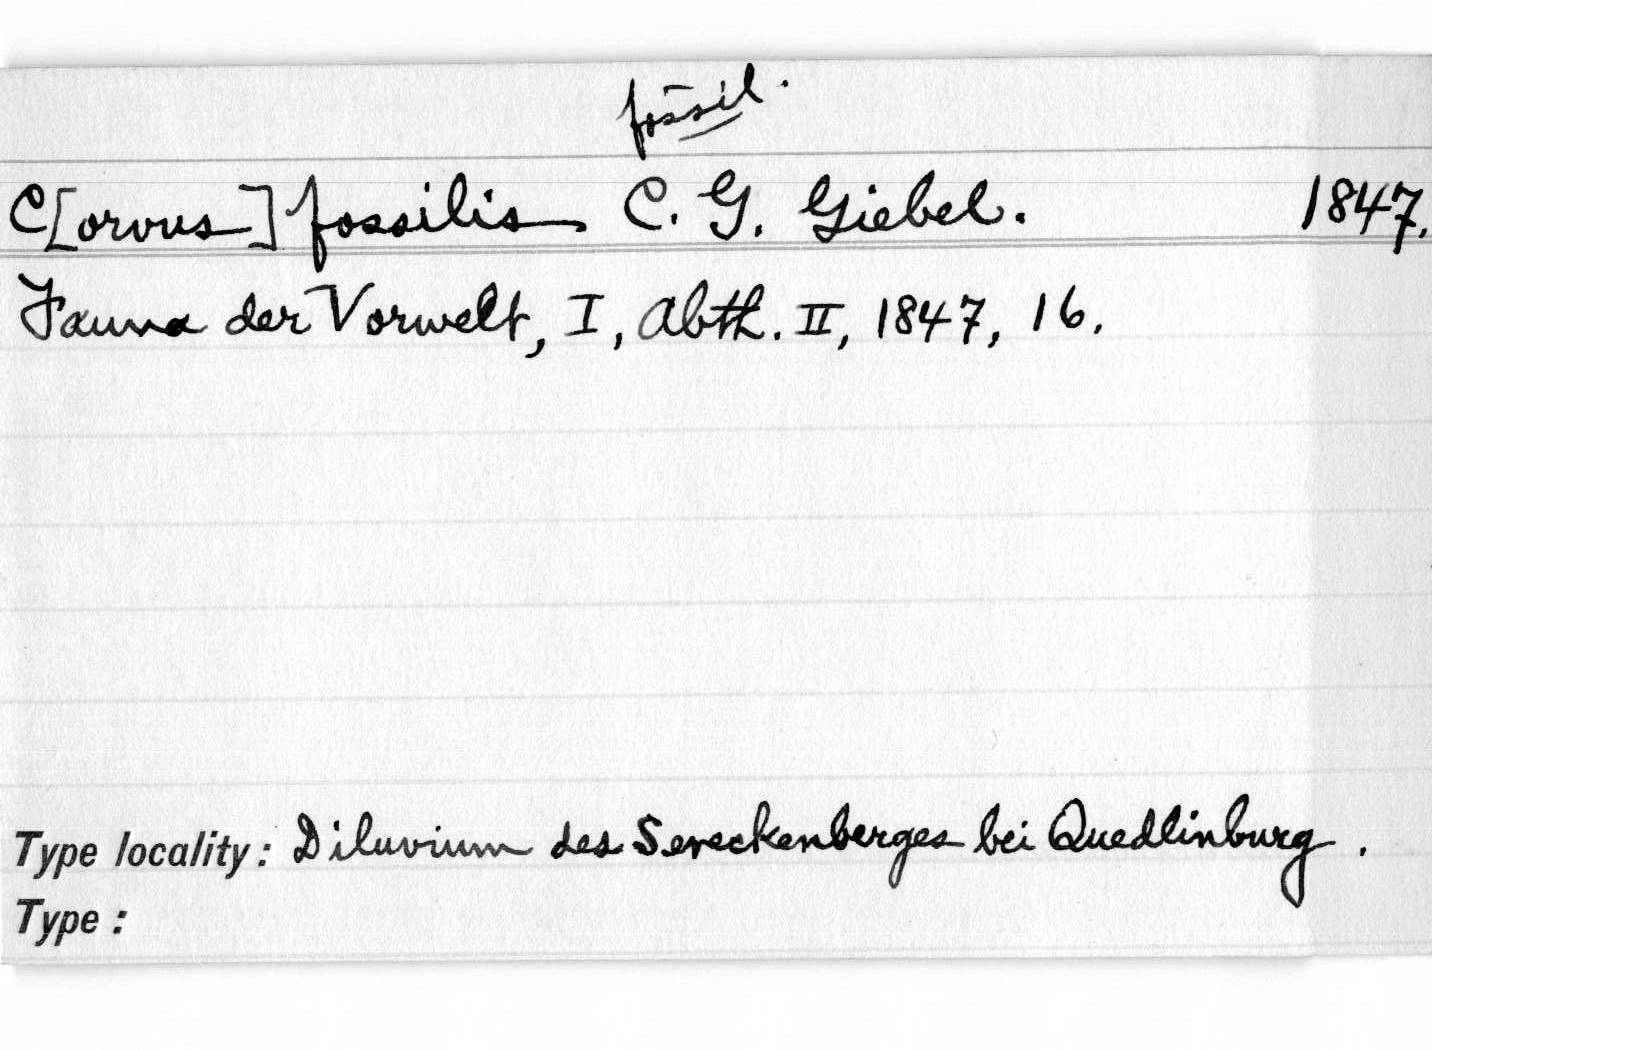 fossil.
C[orvus] fossilis C. G. Giebel. 1847.
Fauna der Vorwelt, I, Abth. II, 1847, 16.
Type locality: Diluvium des Sereckenberges bei Quedlinburg.
Type: